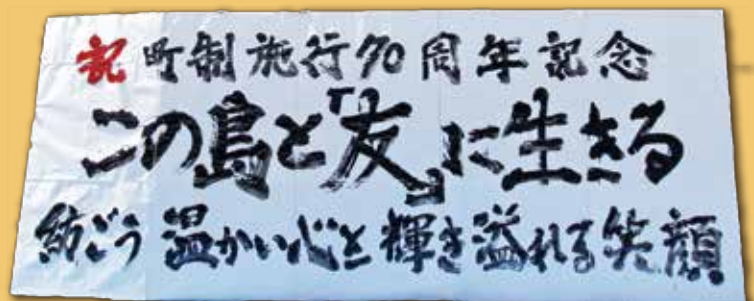 祝 町制施行70周年記念
この島と「友」に生きる
紡ごう 温かい心と輝き溢れる笑顔